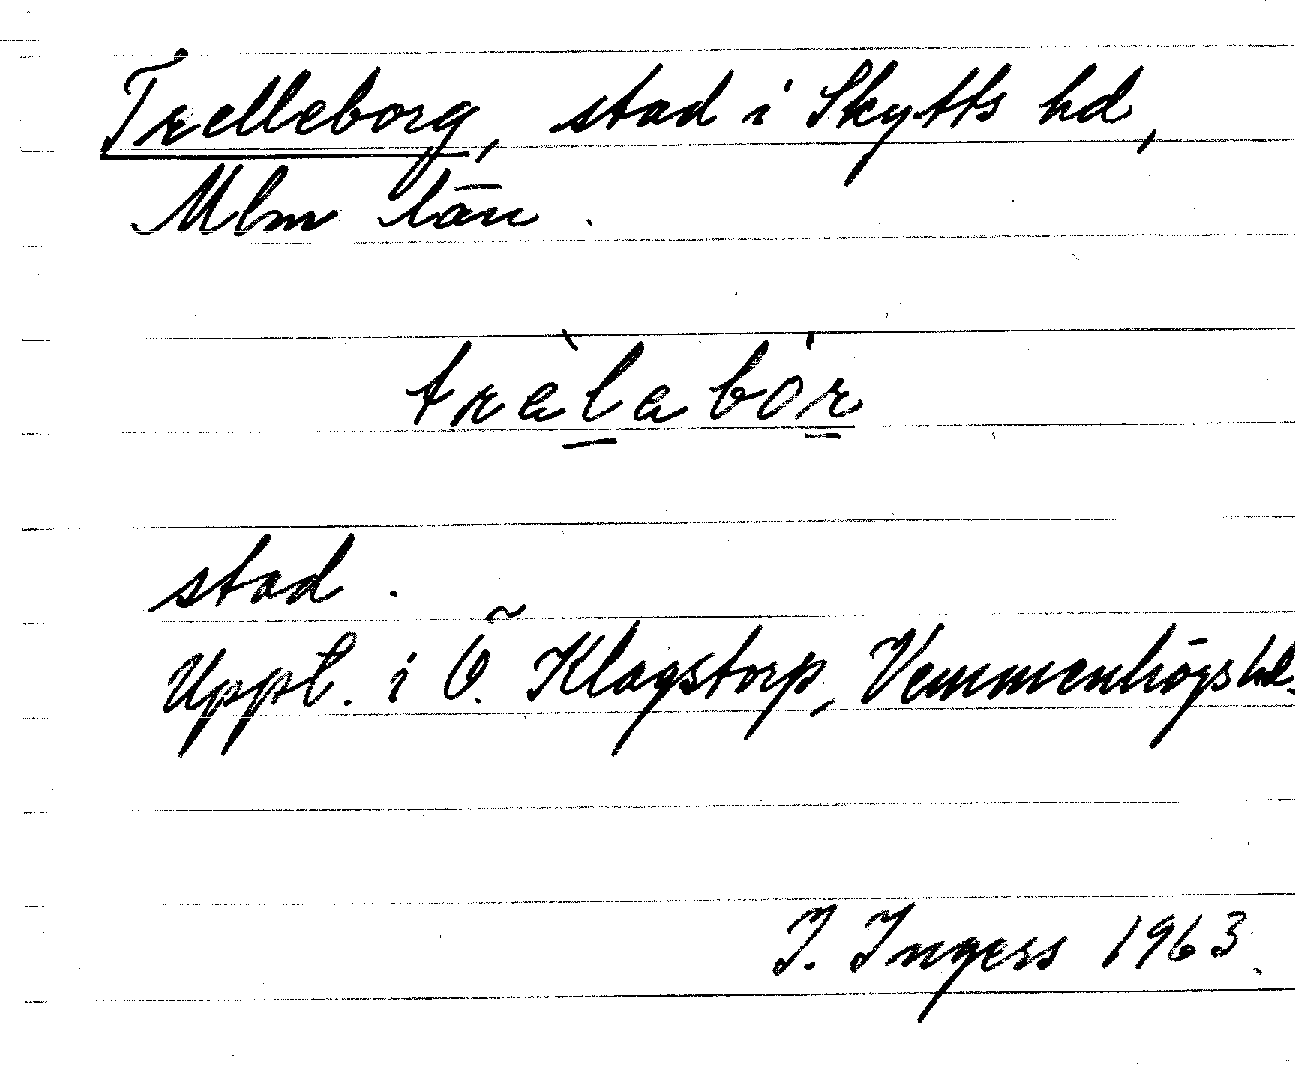 Trelleborg, stad i Skytts hd,
Mlm län.
trälabór
stad.
Uppl. i Ö. Klagstorp, Vemmenhögs hd.
I. Ingers 1963.